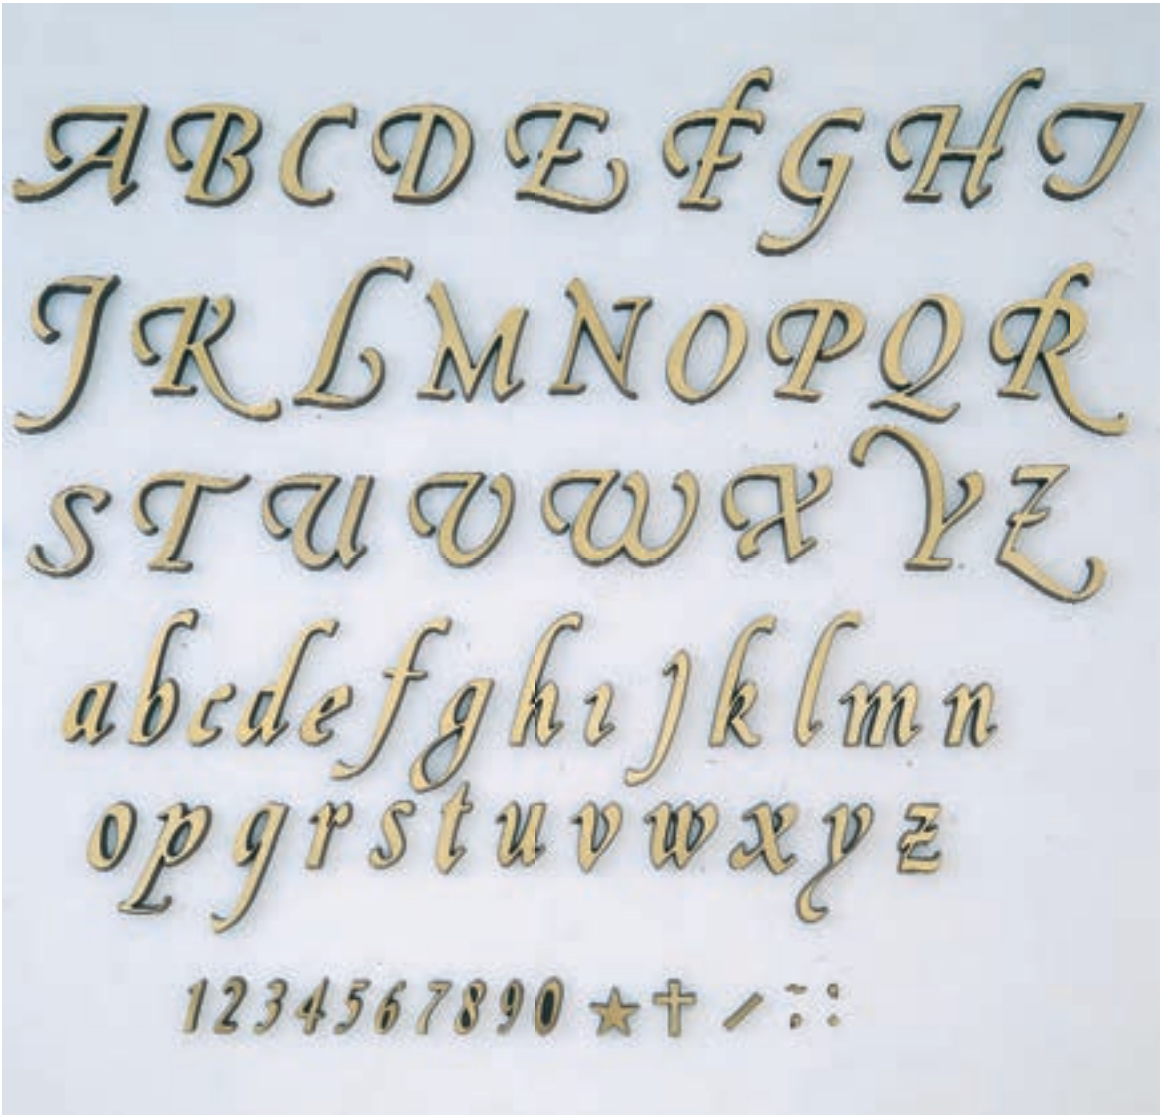 ABCDEFGHI
JKLMNOPQR
STUVWXYZ
abcdefghıȷklmn
opqrstuvwxyz
1234567890 ★ ✝ /